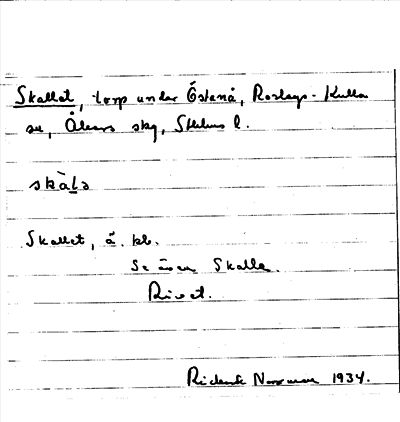 Skallet, torp under Östanå, Roslags-Kulla
sn, Åkers skg, Sthlms l.
skàlɜ
Skallet, ä. kb.
Se även Skalla.
Rivet.
Rickard Norrman 1934.